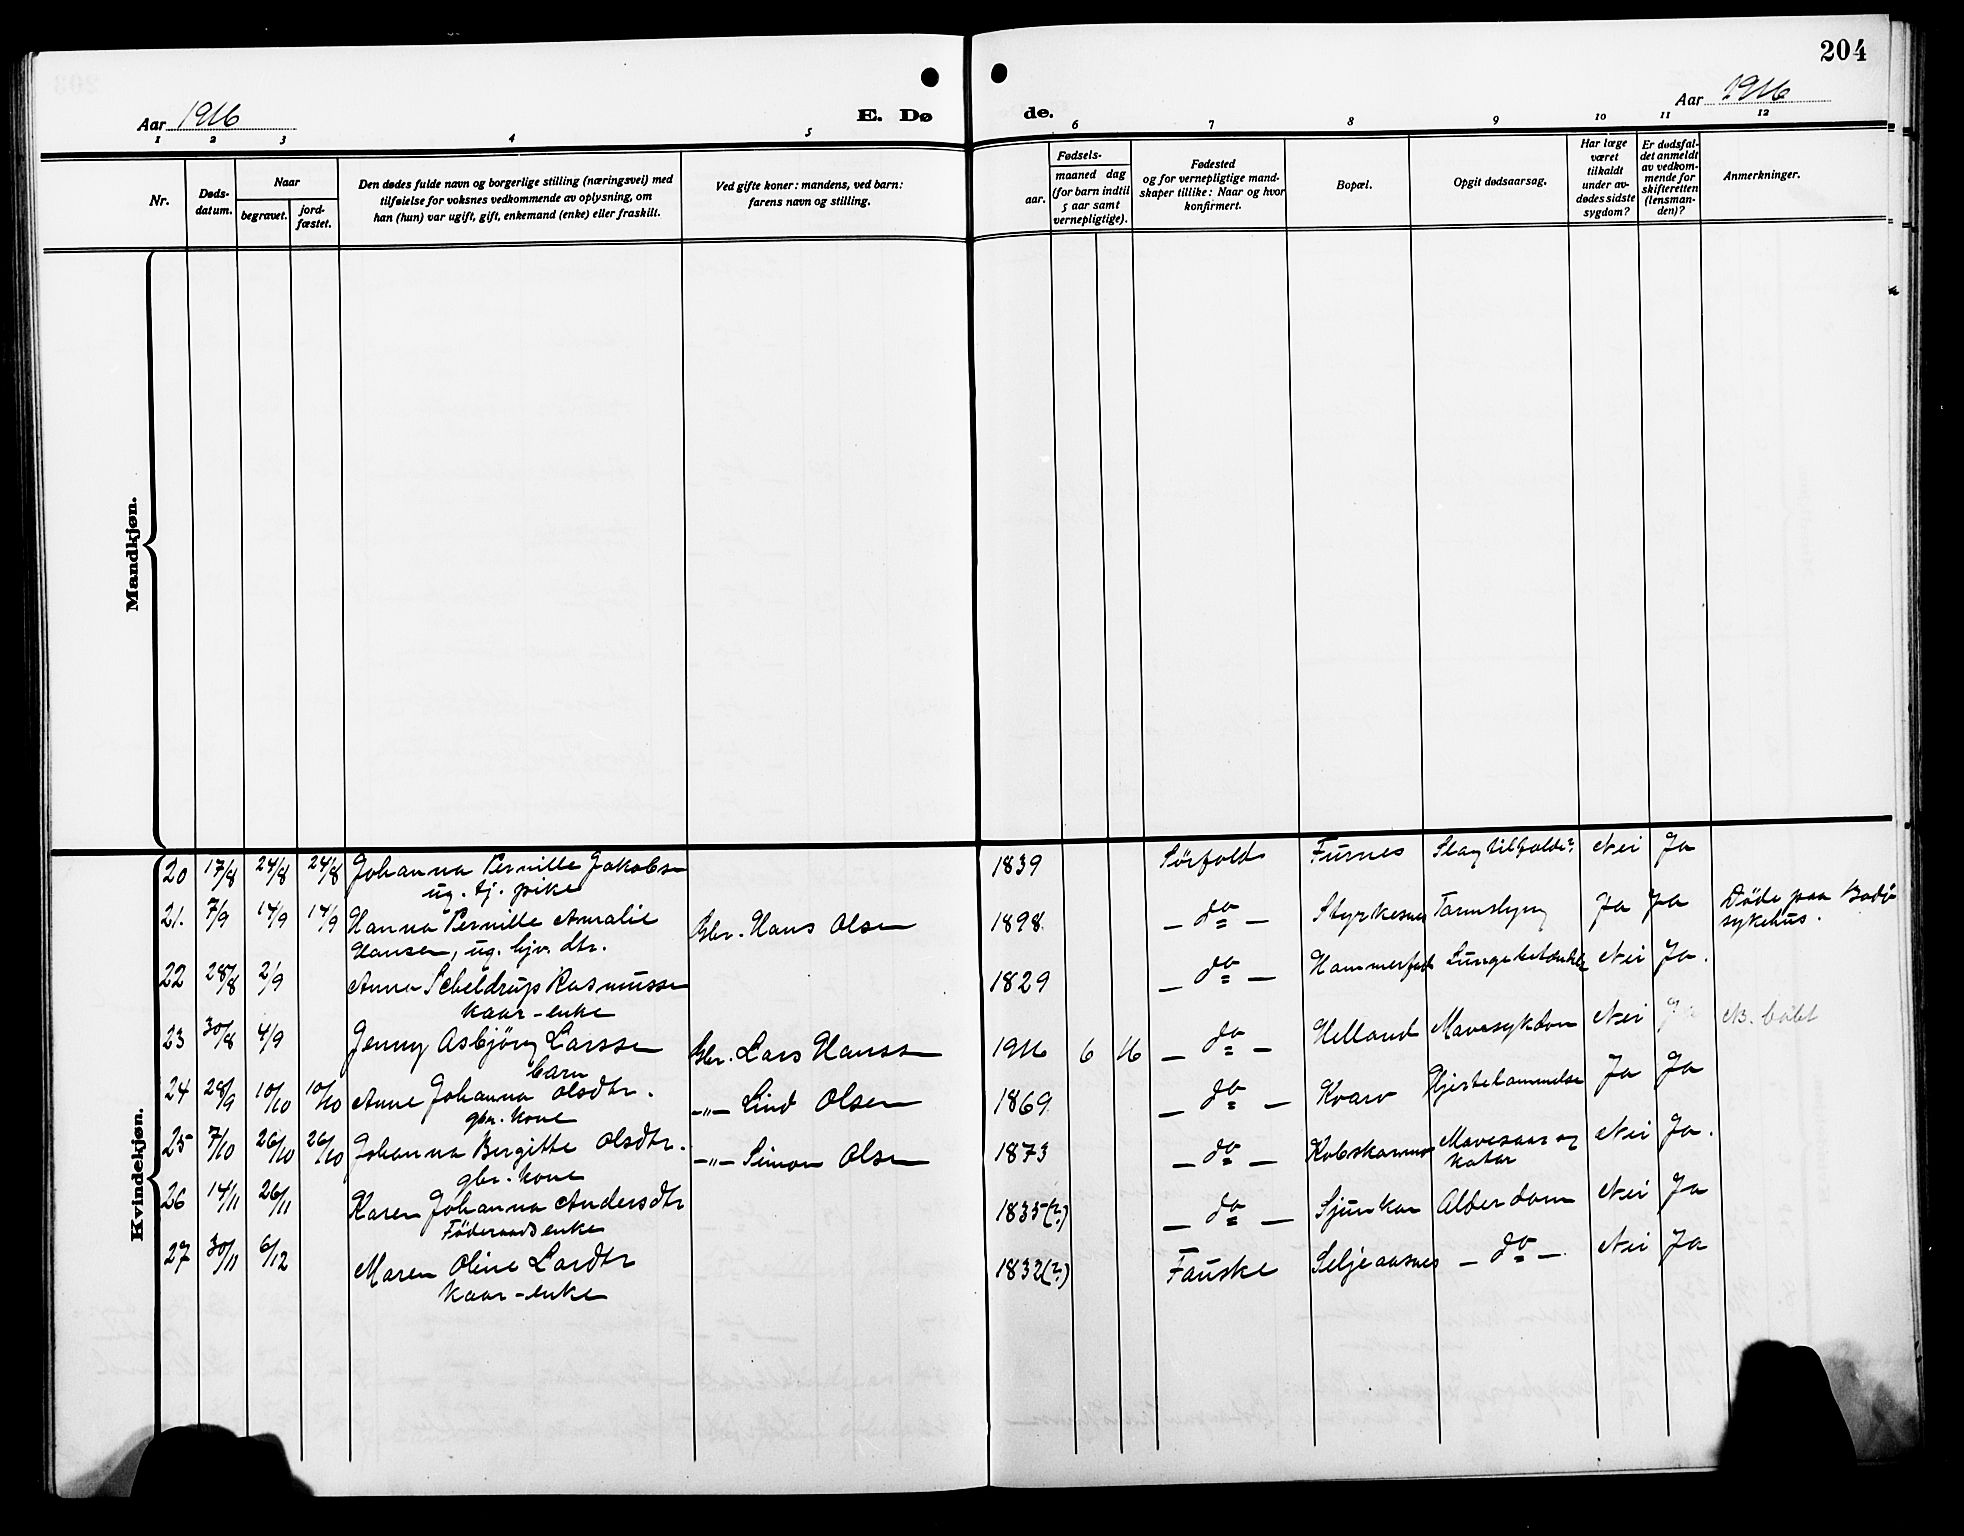 204
Aar 1916
E. Dø
de.
Aar 1916
1 2 3 4 5 6 7 8 9 10 11 12
Nr.
Døds-
datum.
Naar
begravet.
jord-
fæstet.
Den dødes fulde navn og borgerlige stilling (næringsvei) med
tilføielse for voksnes vedkommende av oplysning, om
han (hun) var ugift, gift, enkemand (enke) eller fraskilt.
Ved gifte koner: mandens, ved barn:
farens navn og stilling.
Fødsels-
aar.
maaned dag
(for barn indtil
5 aar samt
vernepligtige).
Fødested
og for vernepligtige mand-
skaper tillike: Naar og hvor
konfirmert.
Bopæl.
Opgit dødsaarsag.
Har læge
været
tilkaldt
under av-
dødes sidste
sygdom?
Er dødsfal-
det anmeldt
av vedkom-
mende for
skifteretten
(lensman-
den)?
Anmerkninger.
Mandkjøn.
Kvindekjøn.
20 17/8 24/8 24/8 Johanna Pernille Jakobsen 1839 Sörfold Furnes Slagtilfælde? Nei Ja
ug. tj. pike
21. 7/9 14/9 14/9 Hanna Pernille Amalie Gbr. Hans Olsen 1898 - do - Styrkesnes Tarmslyng Ja Ja Döde paa Bodö
Hansen, ug. hjv. dtr. sykehus.
22 28/8 2/9 Anna Scheldrup Rasmussen 1829 - do - Hammerfald Lungebetændelse Nei Ja.
Kaar-enke
23 30/8 4/9 Jenny Asbjörg Larssen Gbr. Lars Hanssen 1916 6 16 - do - Helland Mavesykdom Nei
barn
24 28/9 10/10 10/10 Anne Johanna Olsdtr. -"- Lind Olsen 1869 - do - Kvarv Hjertelammelse Ja Ja
gbr. kone
25 7/10 26/10 26/10 Johanna Bergitte Olsdtr. -"- Simon Olsen 1873 - do - Mavesaar og Nei Ja.
gbr. kone katar
26 14/11 26/11 Karen Johanna Andersdtr 1835(?) - do - Sjunkan Alderdom Nei Ja
Föderaadsenke
27 30/11 6/12 Maren Oline Larsdtr 1832(?) Fauske Seljeaasnes - do - Nei Ja
Kaar-enke